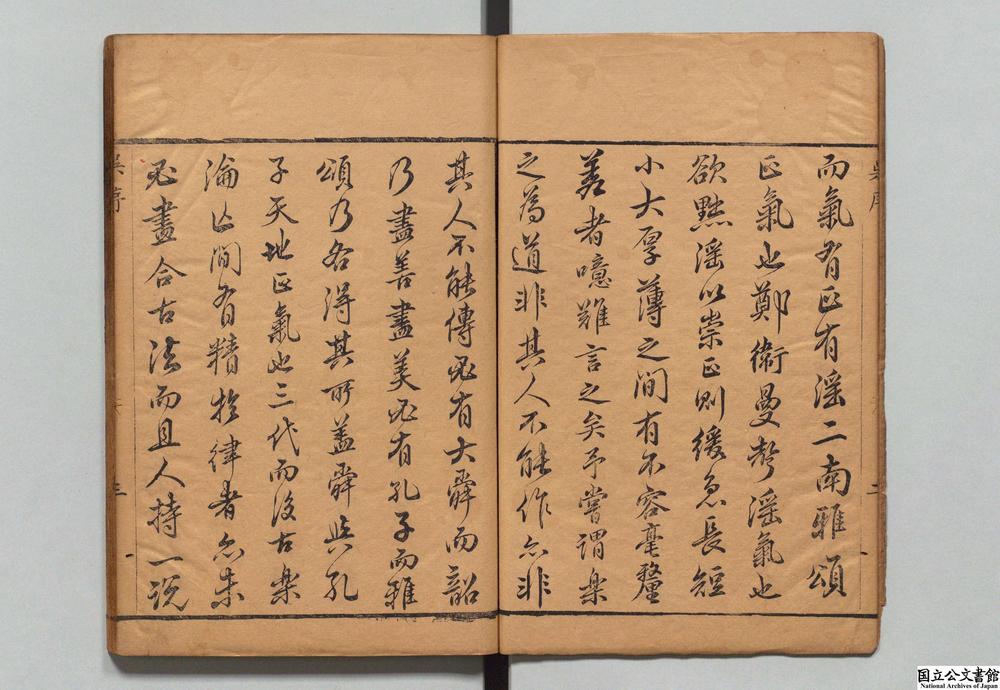 而氣有正有淫二南雅頌
正氣也鄭衛曼聲淫氣也
欲黜淫以崇正則緩急長短
小大厚薄之間有不容毫釐
差者噫難言之矣予嘗謂樂
之為道非其人不能作亦非
其人不能傳必有大舜而韶
乃盡善盡美必有孔子而雅
頌乃各得其所蓋舜與孔
子天地正氣也三代而後古樂
淪亡間有精於律者亦未
必盡合古法而且人持一說
吳序
二
吳序
三
国立公文書館
National Archives of Japan